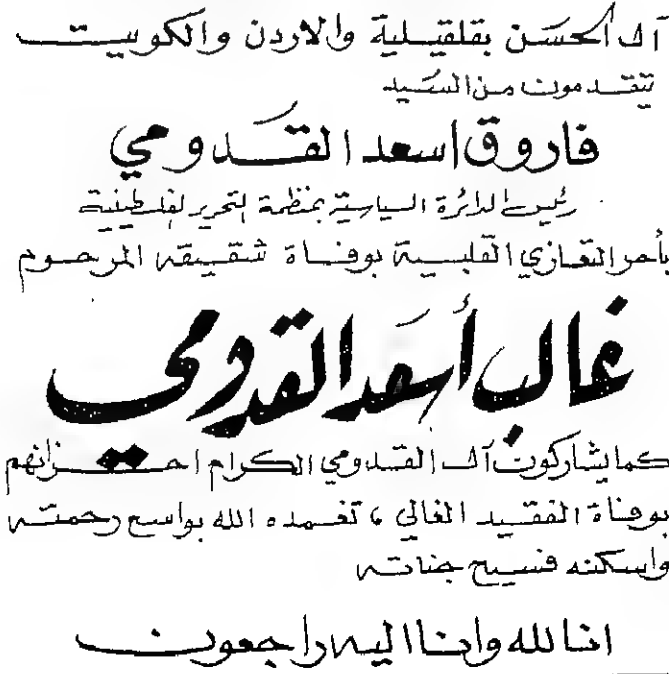 آل الحسن بقلقيلية والاردن والكويت
يتقدمون من السيد
فاروق اسعد القدومي
رئيس الدائرة السياسية بمنظمة التحرير الفلسطينية
بأحر التعازي القلبية بوفاة شقيقه المرحوم
غالب أسعد القدومي
كما يشاركون آل القدومي الكرام احزانهم
بوفاة الفقيد الغالي ، تغمده الله بواسع رحمته
واسكنه فسيح جناته
انا لله وانا اليه راجعون